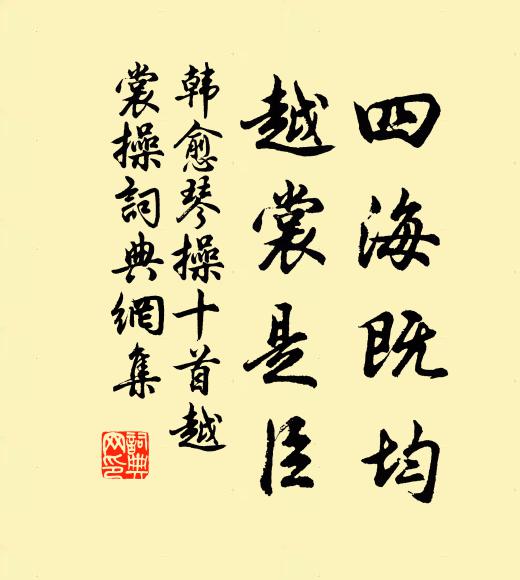 四海既均
越裳是臣
韩愈琴操十首越
裳操詞典網集
詞典
网印